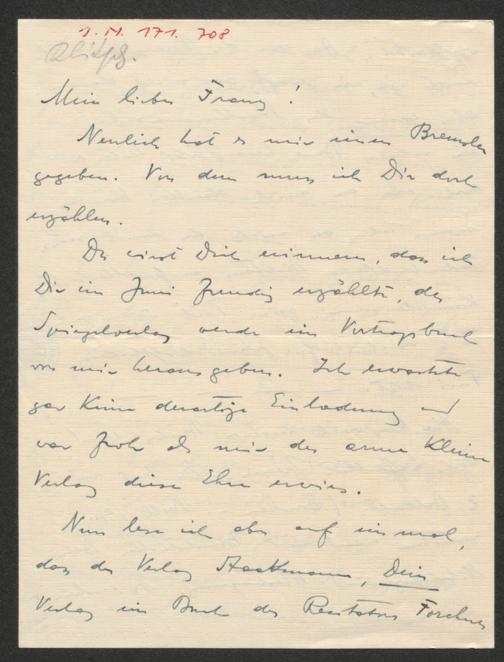 J. N. 171. 708
Mein lieber Franz!
Neulich hat es mir einen Bremsler
gegeben. Von dem muss ich Dir doch
erzählen.
Du wirst Dich erinnern, dass ich
Dir im Juni freudig erzählte, der
Spiegelverlag werde ein Vortragsbuch
von mir herausgeben. Ich erwartete
gar keine derartige Einladung und
war froh als mir der arme kleine
Verlag diese Ehre erwies.
Nun lese ich aber auf einmal,
dass der Verlag Staackmann, Dein
Verlag ein Buch des Rezitators Forcher